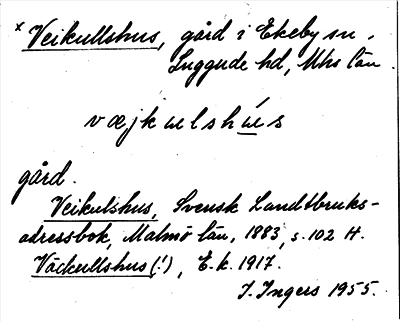 x Veikullshus, gård i Ekeby sn,
Luggude hd, Mhs län.
væjkulshús
gård.
Veikulshus, Svensk Landtbruks-
adressbok, Malmö län, 1883, s. 102 H.
Väckullshus (!), E.k. 1917.
I. Ingers 1955.